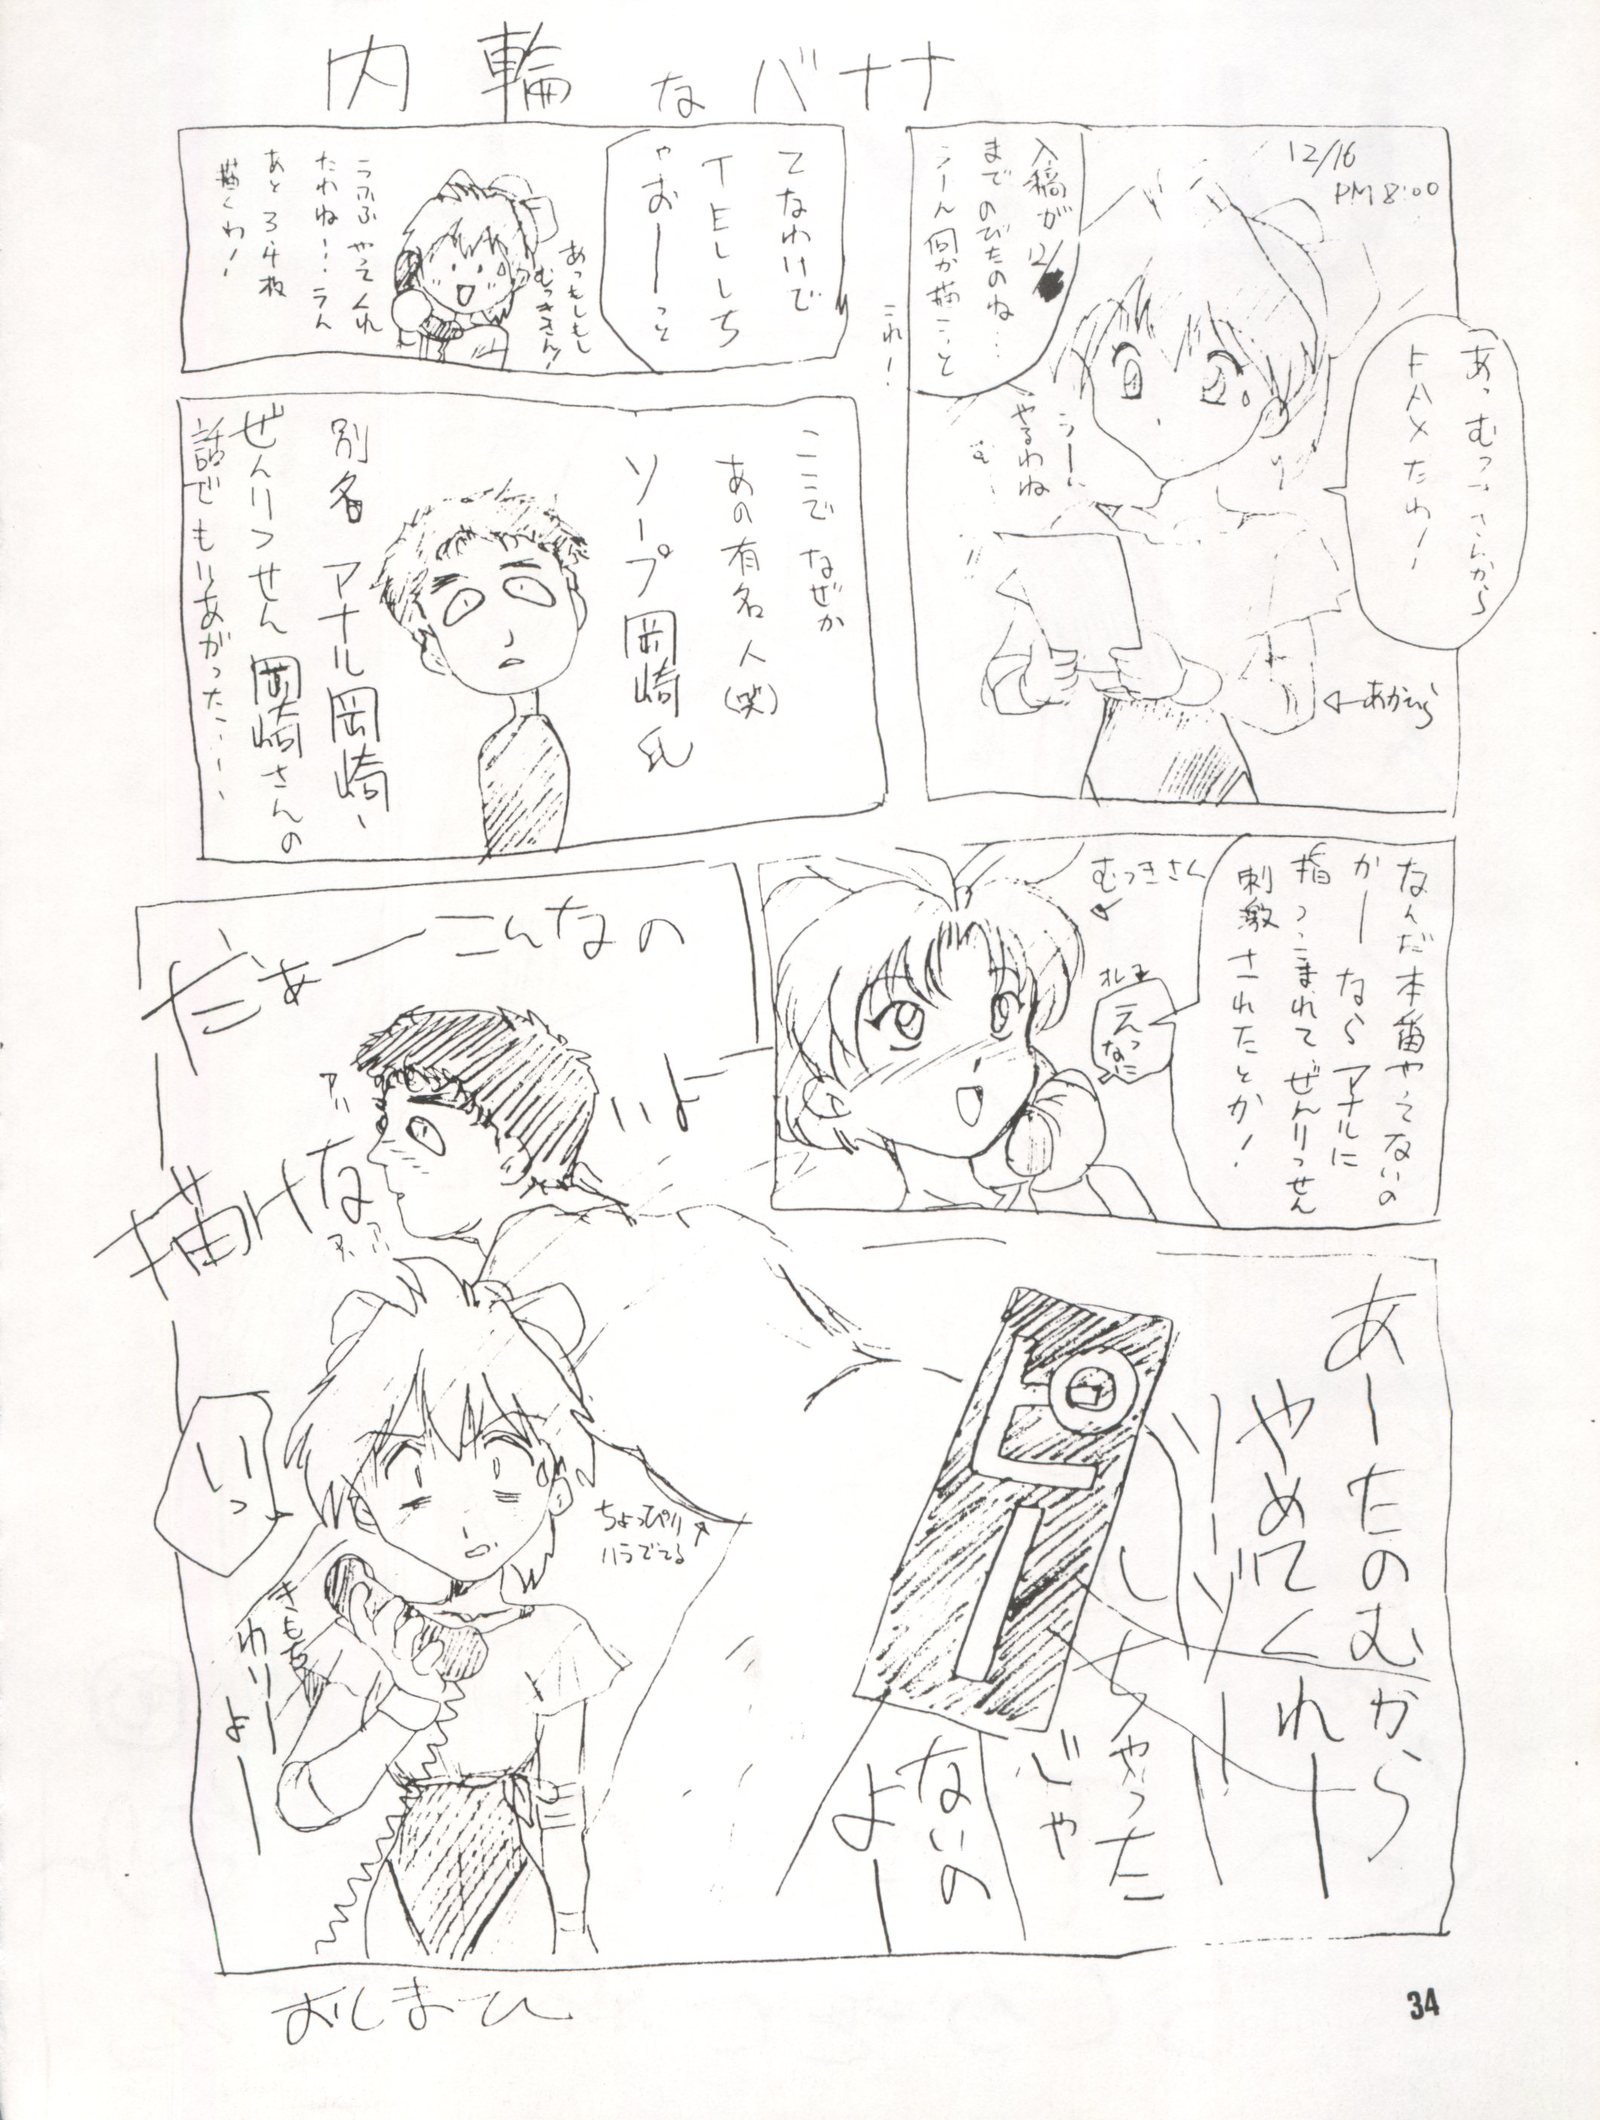 内輪なバナナ
12/16
PM 8:00
あっむつきさんから
FAXだわー
入稿が12/
までのびたのね…
うーん何か描こっと
うーん
やるわね
これ!
←あかむら
てなわけで
TELしち
ゃおーっと
あっもしもし
むつきさん!
うふふやってくれ
たわね…うん
あと3,4枚
描くわ!
ここでなぜか
あの有名人(笑)
ソープ岡崎氏
別名 アナル岡崎、
ぜんりつせん岡崎さんの
話でもりあがった…
なんだ本番やってないの
かー なら アナルに
指つっこまれて、ぜんりっせん
刺激されたとか!
むつきさん
えっ
なに
だぁーこんなの
描けな
いよー
あーたのむから
やめてくれー
ピー
しちゃった
じゃ
ないの
よー
ちょっぴり
ハラでてる
いっ
きもち
わりー
よー
おしまひ
34